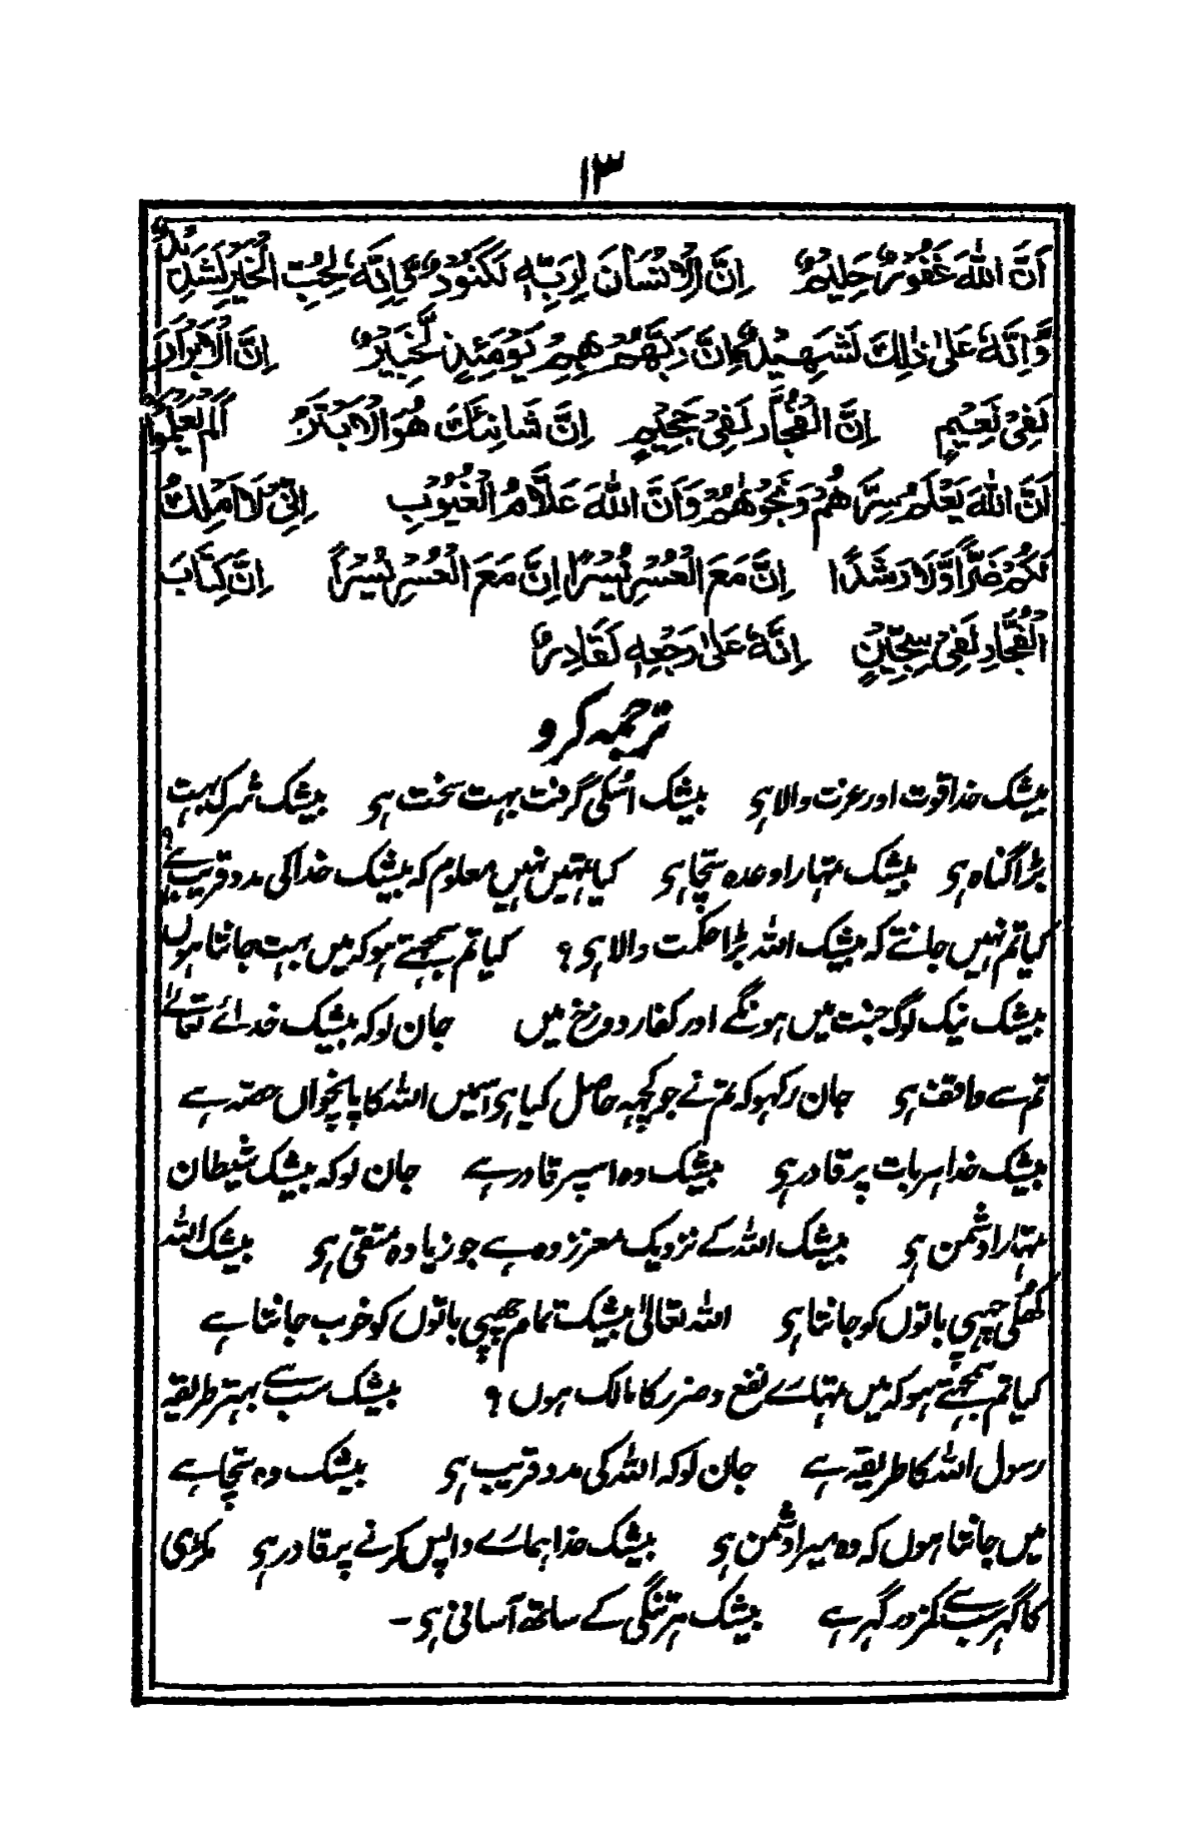 ۱۳
اَنَّ اللّٰهَ غَفُوْرٌ حَلِيْمٌ اِنَّ الْاِنْسَانَ لِرَبِّهٖ لَكَنُوْدٌ وَّاِنَّهٗ لِحُبِّ الْخَيْرِ لَشَدِيْدٌ
وَّاِنَّهٗ عَلٰى ذٰلِكَ لَشَهِيْدٌ اِنَّ رَبَّهُمْ بِهِمْ يَوْمَئِذٍ لَّخَبِيْرٌ اِنَّ الْاَبْرَارَ
لَفِىْ نَعِيْمٍ اِنَّ الْفُجَّارَ لَفِىْ جَحِيْمٍ اِنَّ شَانِئَكَ هُوَ الْاَبْتَرُ اَلَمْ يَعْلَمُوْا
اَنَّ اللّٰهَ يَعْلَمُ سِرَّهُمْ وَنَجْوٰهُمْ وَاَنَّ اللّٰهَ عَلَّامُ الْغُيُوْبِ اِنِّىْ لَا اَمْلِكُ
لَكُمْ ضَرًّا وَّلَا رَشَدًا اِنَّ مَعَ الْعُسْرِ يُسْرًا اِنَّ مَعَ الْعُسْرِ يُسْرًا اِنَّ كِتَابَ
الْفُجَّارِ لَفِىْ سِجِّيْنٍ اِنَّهٗ عَلٰى رَجْعِهٖ لَقَادِرٌ
ترجمہ کرو
بیشک خدا قوت اور عزت والا ہی بیشک اسکی گرفت بہت سخت ہی بیشک شرک بہت
بڑا گناہ ہی بیشک تمہارا وعدہ سچا ہی کیا تمہیں نہیں معلوم کہ بیشک خدا کی مدد قریب ہے؟
کیا تم نہیں جانتے کہ بیشک اللہ بڑا حکمت والا ہی؟ کیا تم سمجھتے ہو کہ میں بہت جانتا ہوں
بیشک نیک لوگ جنت میں ہونگے اور کفار دوزخ میں جان لو کہ بیشک خدائے تعالےٰ
تم سے واقف ہی جان رکھو کہ تم نے جو کچھ حاصل کیا ہی اسمیں اللہ کا پانچواں حصہ ہے
بیشک خدا ہر بات پر قادر ہی بیشک وہ اسپر قادر ہے جان لو کہ بیشک شیطان
تمہارا دشمن ہی بیشک اللہ کے نزدیک معزز وہ ہے جو زیادہ متقی ہی بیشک اللہ
کھلی چھپی باتوں کو جانتا ہی اللہ تعالیٰ بیشک تمام چھپی باتوں کو خوب جانتا ہے
کیا تم سمجھتے ہو کہ میں تمہارے نفع و ضرر کا مالک ہوں؟ بیشک سب سے بہتر طریقہ
رسول اللہ کا طریقہ ہے جان لو کہ اللہ کی مدد قریب ہی بیشک وہ سچا ہے
میں جانتا ہوں کہ وہ میرا دشمن ہی بیشک خدا ہمارے واپس کرنے پر قادر ہی مکڑی
کا گھر سب سے کمزور گھر ہے بیشک ہر تنگی کے ساتھ آسانی ہی۔